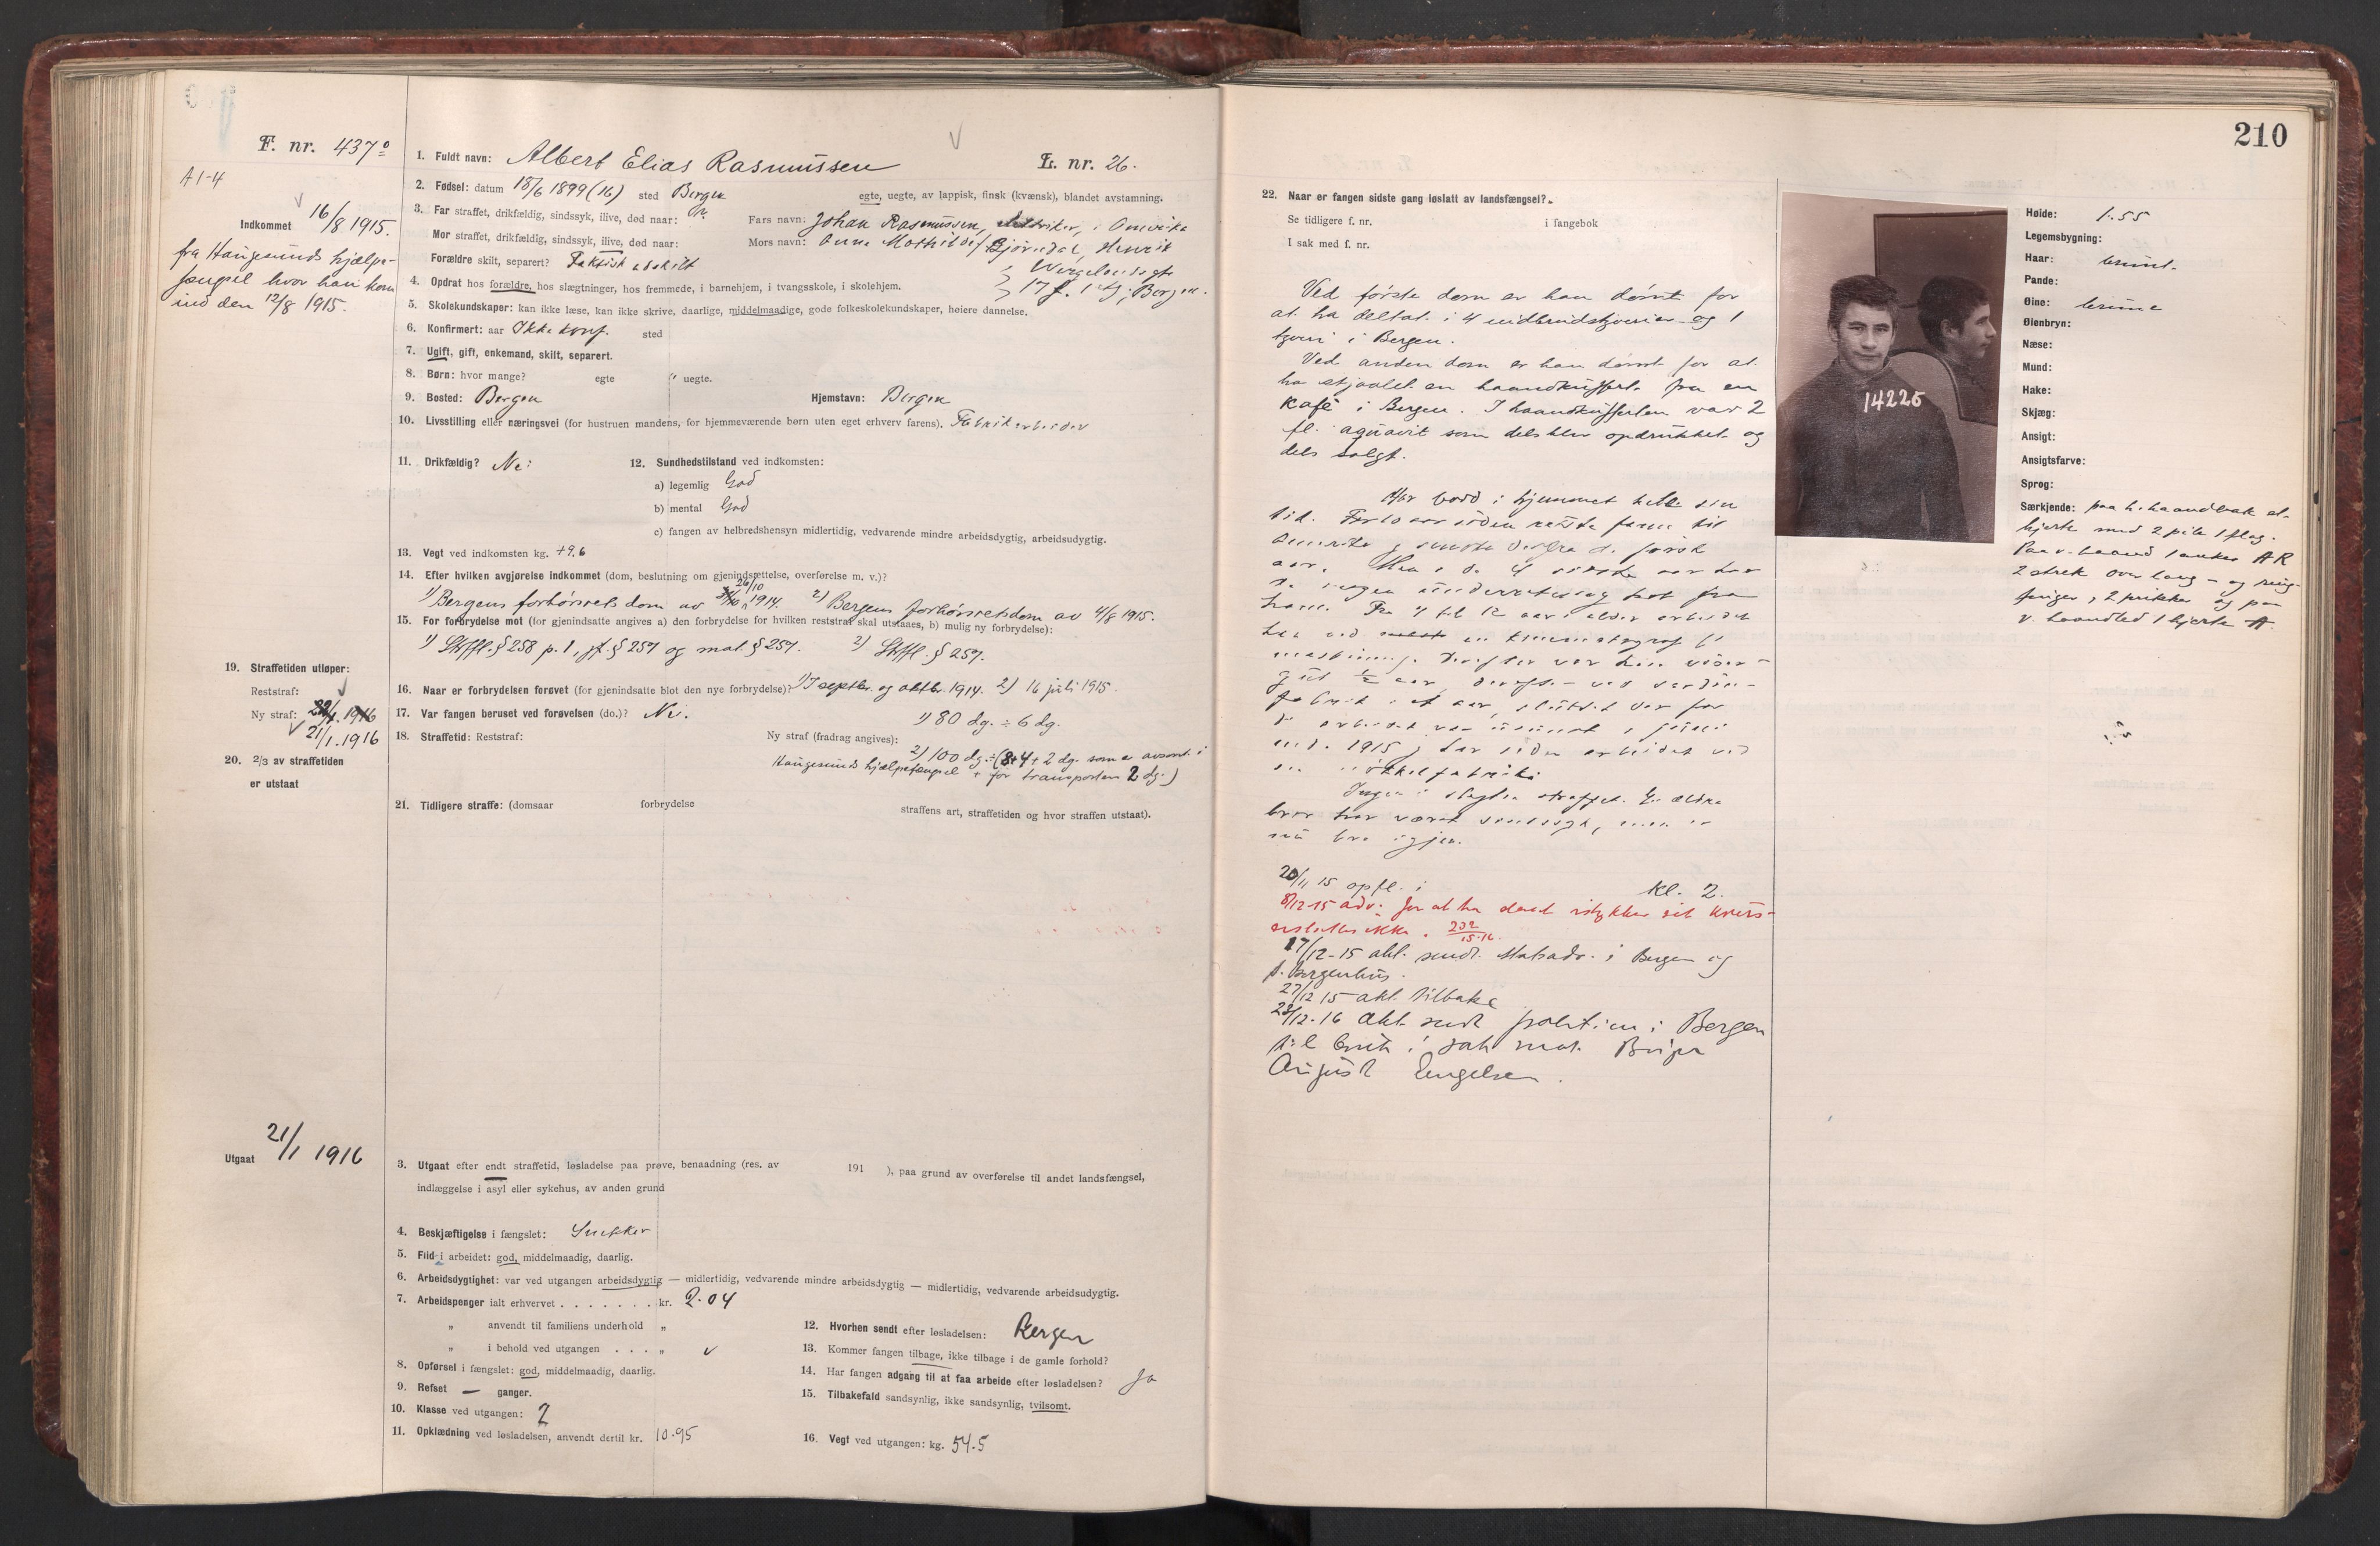 F. nr. 437
A 1-4
Indkommet 16/8 1915.
fra Haugesunds hjælpe-
fængsel hvor han kom
ind den 12/8 1915.
1. Fuldt navn: Albert Elias Rasmussen
L. nr. 26.
2. Fødsel: datum 18/6 1899 (16) sted Bergen
egte, uegte, av lappisk, finsk (kvænsk), blandet avstamning.
3. Far straffet, drikfældig, sindssyk, ilive, død naar:
Fars navn: Johan Rasmussen, i Amerika
Mor straffet, drikfældig, sindssyk, ilive, død naar:
Mors navn: Anna Mathilde f. Bjørndal, Henrik
Forældre skilt, separert? Faktisk adskilt
Wergelandsgt.
4. Opdrat hos forældre, hos slægtninger, hos fremmede, i barnehjem, i tvangsskole, i skolehjem.
17 Bergen.
5. Skolekundskaper: kan ikke læse, kan ikke skrive, daarlige, middelmaadige, gode folkeskolekundskaper, høiere dannelse.
6. Konfirmert: aar Ikke konf. sted
7. Ugift, gift, enkemand, skilt, separert.
8. Børn: hvor mange? egte uegte.
9. Bosted: Bergen Hjemstavn: Bergen
10. Livsstilling eller næringsvei (for hustruen mandens, for hjemmeværende børn uten eget erhverv farens). Fabrikarbeider
11. Drikfældig? Nei
12. Sundhetstilstand ved indkomsten:
a) legemlig God
b) mental God
c) fangen av helbredshensyn midlertidig, vedvarende mindre arbeidsdygtig, arbeidsudygtig.
13. Vegt ved indkomsten kg. 49.6
14. Efter hvilken avgjørelse indkommet (dom, beslutning om gjenindsættelse, overførelse m. v.)?
26/10
1) Bergens forhørsrets dom av 1914. 2) Bergens forhørsretsdom av 4/8 1915.
15. For forbrydelse mot (for gjenindsatte angives a) den forbrydelse for hvilken reststraf skal utstaaes, b) mulig ny forbrydelse):
1) Strffl. § 258 p. 1, jf. § 257 og mot § 257. 2) Strffl. § 257.
16. Naar er forbrydelsen forøvet (for gjenindsatte blot den nye forbrydelse)? 1) I septbr. og oktbr. 1914. 2) 16 juli 1915.
17. Var fangen beruset ved forøvelsen (do.)? Nei.
18. Straffetid: Reststraf: Ny straf (fradrag angives): 1) 80 dg. ÷ 6 dg.
2) 100 dg. ÷ (8+4+2 dg. som er avsont i
Haugesunds hjælpefængsel + for transporten 2 dg.)
19. Straffetiden utløper:
Reststraf:
Ny straf: 1916
21/1. 1916
20. 2/3 av straffetiden
er utstaat
21. Tidligere straffe: (domsaar forbrydelse straffens art, straffetiden og hvor straffen utstaat).
Utgaat 21/1 1916
3. Utgaat efter endt straffetid, løsladelse paa prøve, benaadning (res. av 191 ), paa grund av overførelse til andet landsfængsel,
indlæggelse i asyl eller sykehus, av anden grund
4. Beskjæftigelse i fængslet: Snekker
5. Flid i arbeidet: god, middelmaadig, daarlig.
6. Arbeidsdygtighet: var ved utgangen arbeidsdygtig — midlertidig, vedvarende mindre arbeidsdygtig — midlertidig, vedvarende arbeidsudygtig.
7. Arbeidspenger ialt erhvervet . . . . . . . kr. 2.04
" anvendt til familiens underhold "
" i behold ved utgangen . . . "
8. Opførsel i fængslet: god, middelmaadig, daarlig.
9. Refset — ganger.
10. Klasse ved utgangen: 2
11. Opklædning ved løsladelsen, anvendt dertil kr. 10.95
12. Hvorhen sendt efter løsladelsen: Bergen
13. Kommer fangen tilbage, ikke tilbage i de gamle forhold?
14. Har fangen adgang til at faa arbeide efter løsladelsen? Ja
15. Tilbakefald sandsynlig, ikke sandsynlig, tvilsomt.
16. Vegt ved utgangen: kg. 54.5
210
22. Naar er fangen sidste gang løslatt av landsfængsel?
Se tidligere f. nr. i fangebok
I sak med f. nr.
Ved første dom er han dømt for
at ha deltat i 4 indbrudstyverier og 1
tyveri i Bergen.
Ved anden dom er han dømt for at
ha stjaalet en haandkuffert fra en
Kafé i Bergen. I haandkufferten var 2
fl. aquavit som dels blev opdrukket og
dels solgt.
Har bodd i hjemmet hele sin
tid. For 10 aar siden reiste faren til
Amerika, sendte derfra de første
aar. Men i de 4 sidste aar har
de ingen underretning hat fra
ham. Fra 9 til 12 aars alder arbeidet
han ved en kinematograf
Derefter var han viser-
gut 1/2 aar, derefter ved
fabrik i et aar, sluttet der for
arbeidet
1915, har siden arbeidet ved
en
Ingen i slegten straffet. En ældre
bror har været sindssyk, men er
nu bra igjen.
20/11 15 opfl. i kl. 2.
8/12-15 adv. for at ha slaat istykker sit
erstattes ikke. 232/15-16.
17/12-15 akt. sendt Statsadv. i Bergen og
s. Bergenhus.
27/12 15 akt. tilbake
22/12-16 akt. sendt politiet i Bergen
til bruk i sak mot Birger
August Engelsen.
14225
Høide: 1.55
Legemsbygning:
Haar: brunt.
Pande:
Øine: brune
Øienbryn:
Næse:
Mund:
Hake:
Skjæg:
Ansigt:
Ansigtsfarve:
Sprog:
Særkjende: paa h. haandbak et
hjerte med 2 pile 1 flag.
Paa v. haand 1 anker AR
2 strek over lang- og ring-
finger, 2 prikker og paa
v. haandled 1 hjerte A.